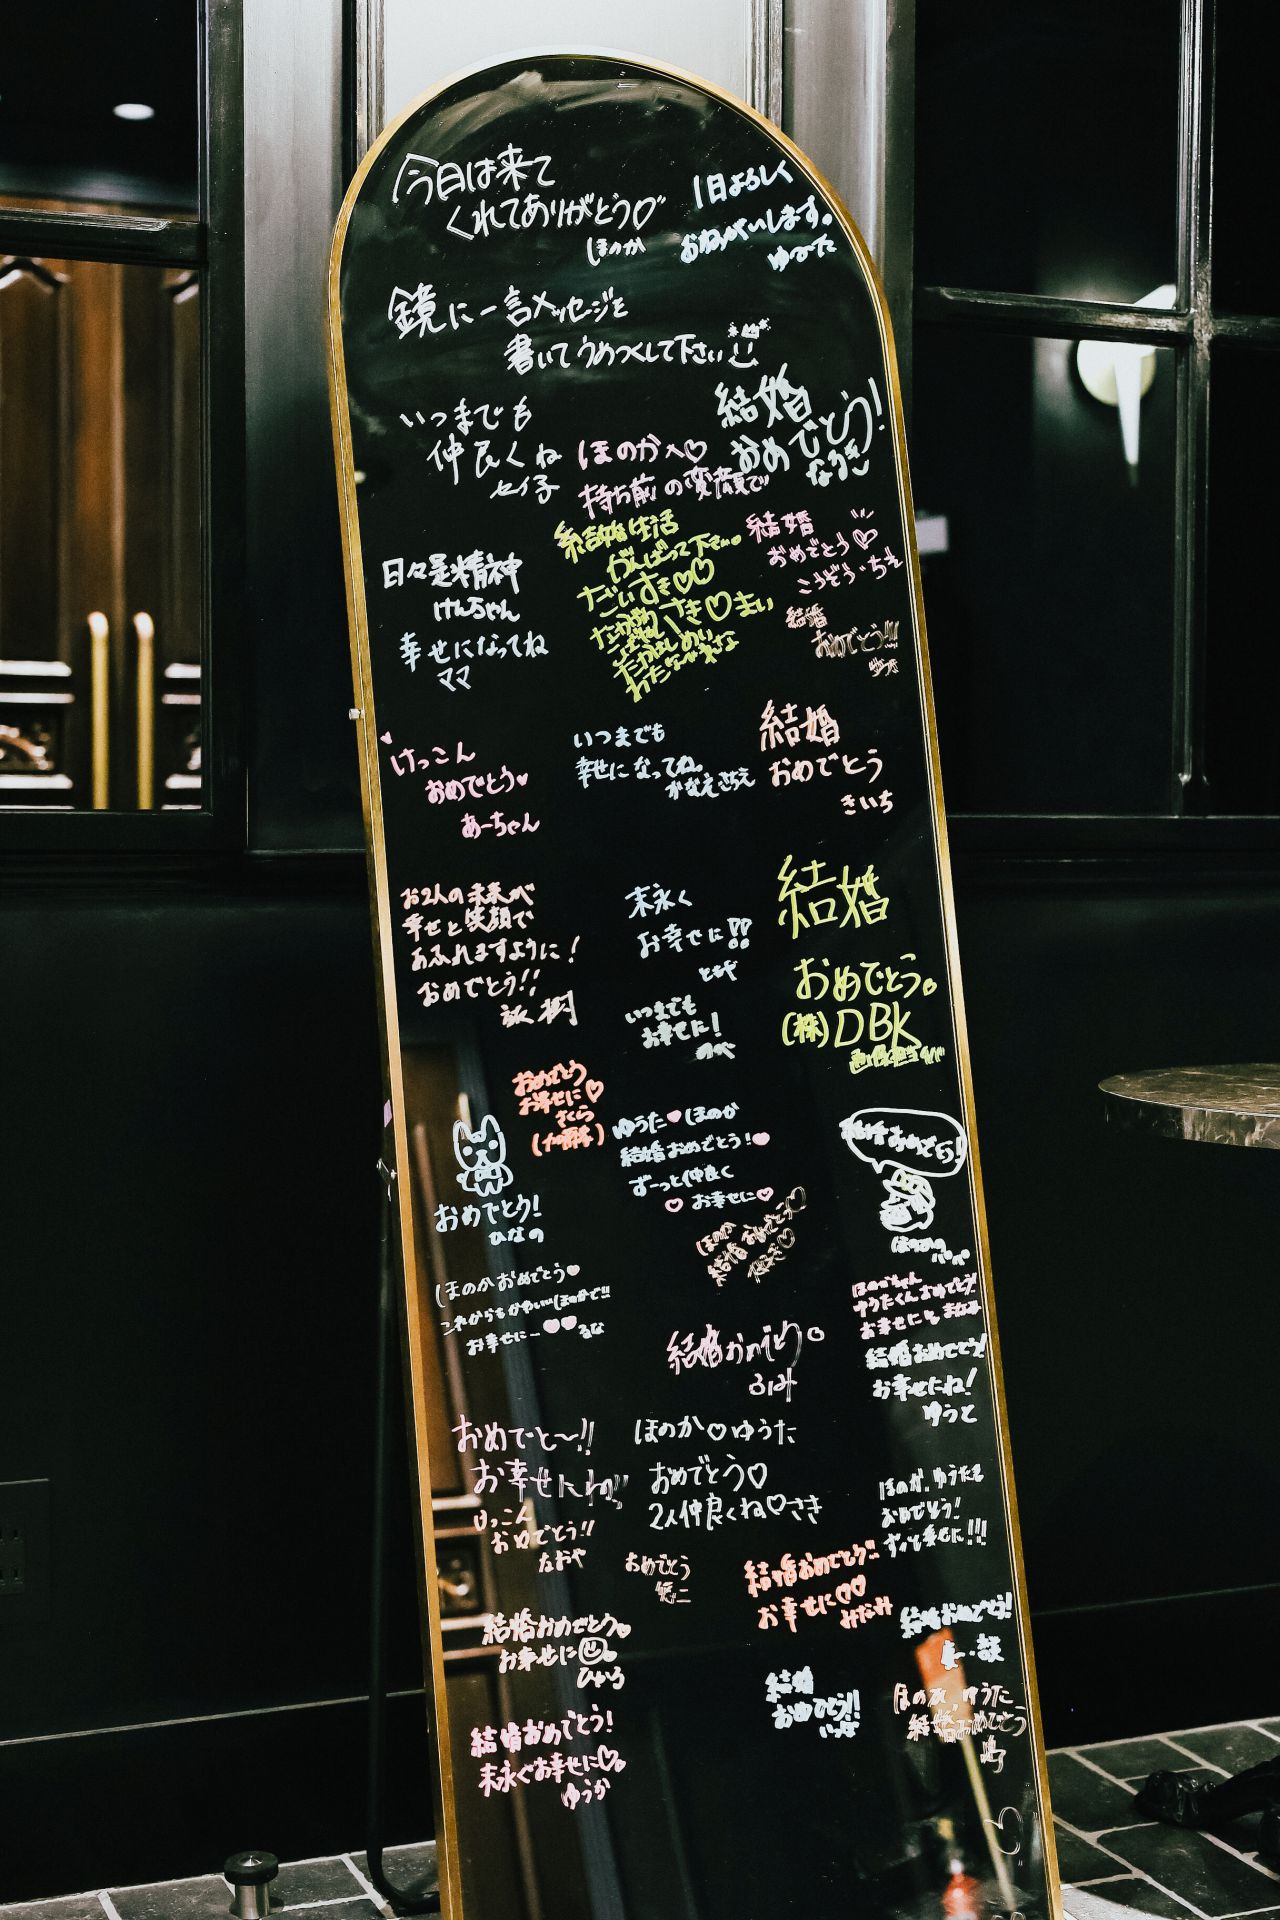 今日は来て
くれてありがとう♡
ほのか
1日よろしく
おねがいします。
ゆうた
鏡に一言メッセージを
書いてうめつくして下さい
いつまでも
仲良くね
セイ子
結婚
おめでとう!
なるき
ほのかへ♡
持ち前の変顔で
結婚生活
がんばって下さい。
だいすき♡♡
さき♡まい
結婚
おめでとう♡
こうぞう・ちえ
日々是精神
けんちゃん
幸せになってね
ママ
結婚
おめでとう!!
けっこん
おめでとう♥
あーちゃん
いつまでも
幸せになってね。
かなえさちえ
結婚
おめでとう
きいち
お2人の未来が
幸せと笑顔で
あふれますように!
おめでとう!!
末永く
お幸せに!!
ともや
結婚
おめでとう。
(株)DBK
いつまでも
お幸せに!
おめでとう
お幸せに♡
さくら
おめでとう!
ひなの
ゆうた♥ほのか
結婚おめでとう!♥
ずーっと仲良く
♡お幸せに♥
結婚おめでとう!
ほのかの
パパ
ほのか
結婚おめでとう♡
ほのかおめでとう♥
これからもかわいいほのかで!!
お幸せにー♥♥るな
ほのかちゃん
ゆうたくんおめでとう!
お幸せに
結婚おめでとう。
ふみ
結婚おめでとう!
お幸せにね!
ゆうと
おめでと〜!!
お幸せにね!!
ほのか♡ゆうた
おめでとう♡
2人仲良くね♡さき
けっこん
おめでとう!!
なおや
おめでとう
ほのか、ゆうた
おめでとう!
ずっと幸せに!!!
結婚おめでとう!!
お幸せに♡♡
みなみ
結婚おめでとう。
お幸せに
ひかる
結婚おめでとう!
結婚
おめでとう!!
ほのか、ゆうた
結婚おめでとう
結婚おめでとう!
末永くお幸せに♡
ゆうか